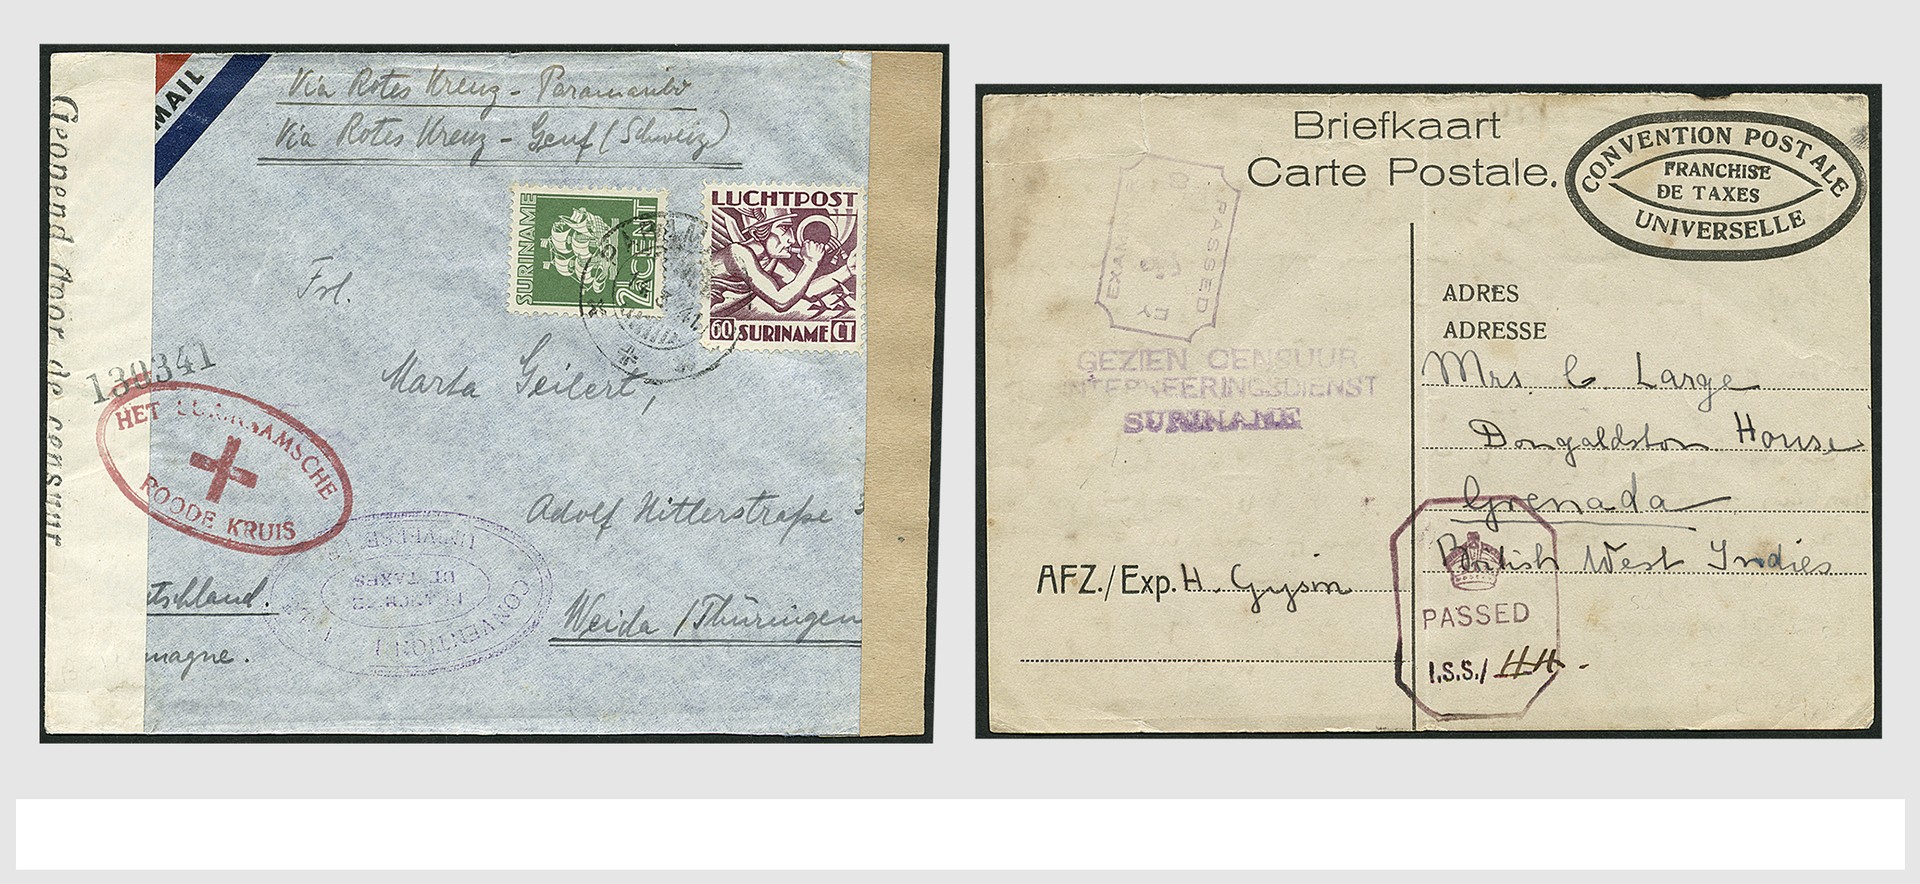 MAIL
Via Rotes Kreuz - Paramaribo
Via Rotes Kreuz - Genf (Schweiz)
Geopend door de censuur
SURINAME
CENT
LUCHTPOST
60 SURINAME CT
Frl.
Marta Geilert,
130341
HET SURINAAMSCHE
ROODE KRUIS
Adolf Hitlerstraße 3
CONVENTION
DE TAXES
Weida / Thüringen
tschland.
magne.
Briefkaart
Carte Postale.
CONVENTION POSTALE
FRANCHISE
DE TAXES
UNIVERSELLE
PASSED
EXAM
GEZIEN CENSUUR
INTERNEERINGSDIENST
SURINAME
ADRES
ADRESSE
Mrs C. Large
Dongaldston House
Grenada
British West Indies
AFZ./Exp. H. Gysin
PASSED
I.S.S./